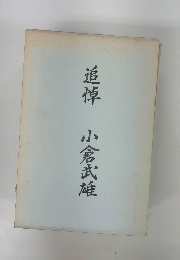 追悼 小倉武雄